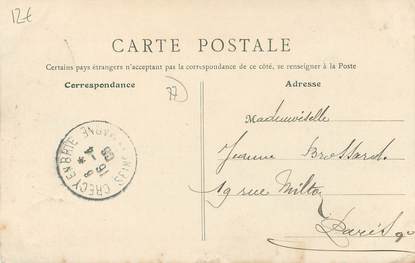 12€
CARTE POSTALE
Certains pays étrangers n'acceptant pas la correspondance de ce côté, se renseigner à la Poste
Correspondance
77
Adresse
Mademoiselle
Jeanne Brossard
19 rue Milton
Paris 9e
CRÉCY EN BRIE
SEINE ET MARNE
8 - 4